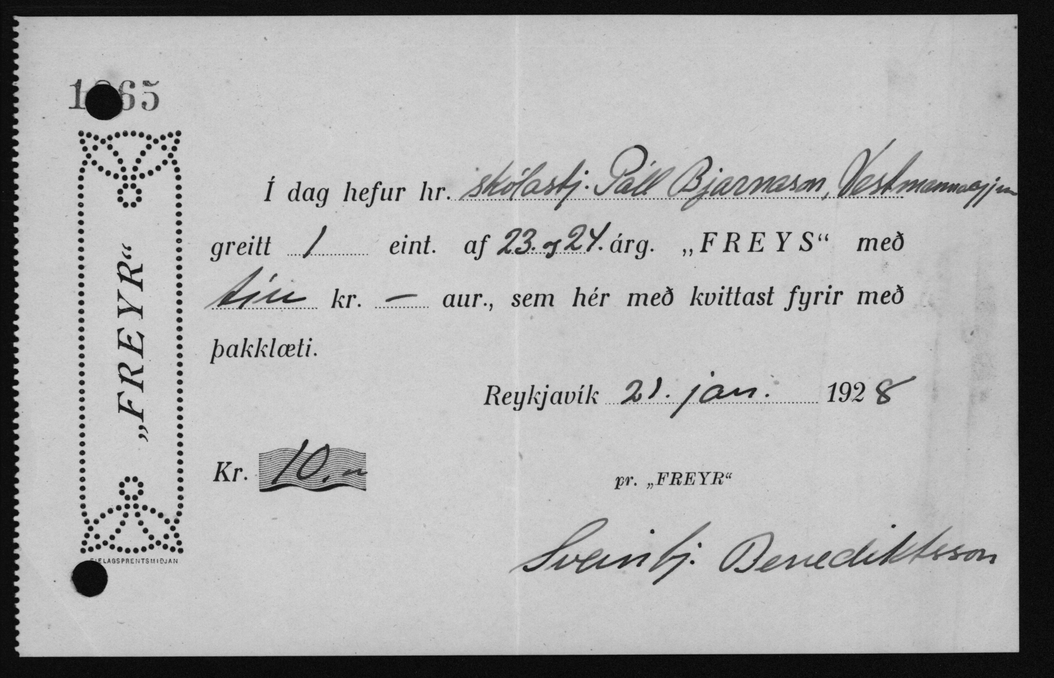 Í dag hefur hr. skólastj. Páll Bjarnason, Vestmannaeyjum
greitt 1 eint. af 23. og 24. árg. „FREYS“ með
tíu kr. — aur., sem hér með kvittast fyrir með
þakklæti.
Reykjavík 21. jan. 1928
Kr. 10.-
pr. „FREYR“
Sveinbj. Benediktsson
„FREYR“